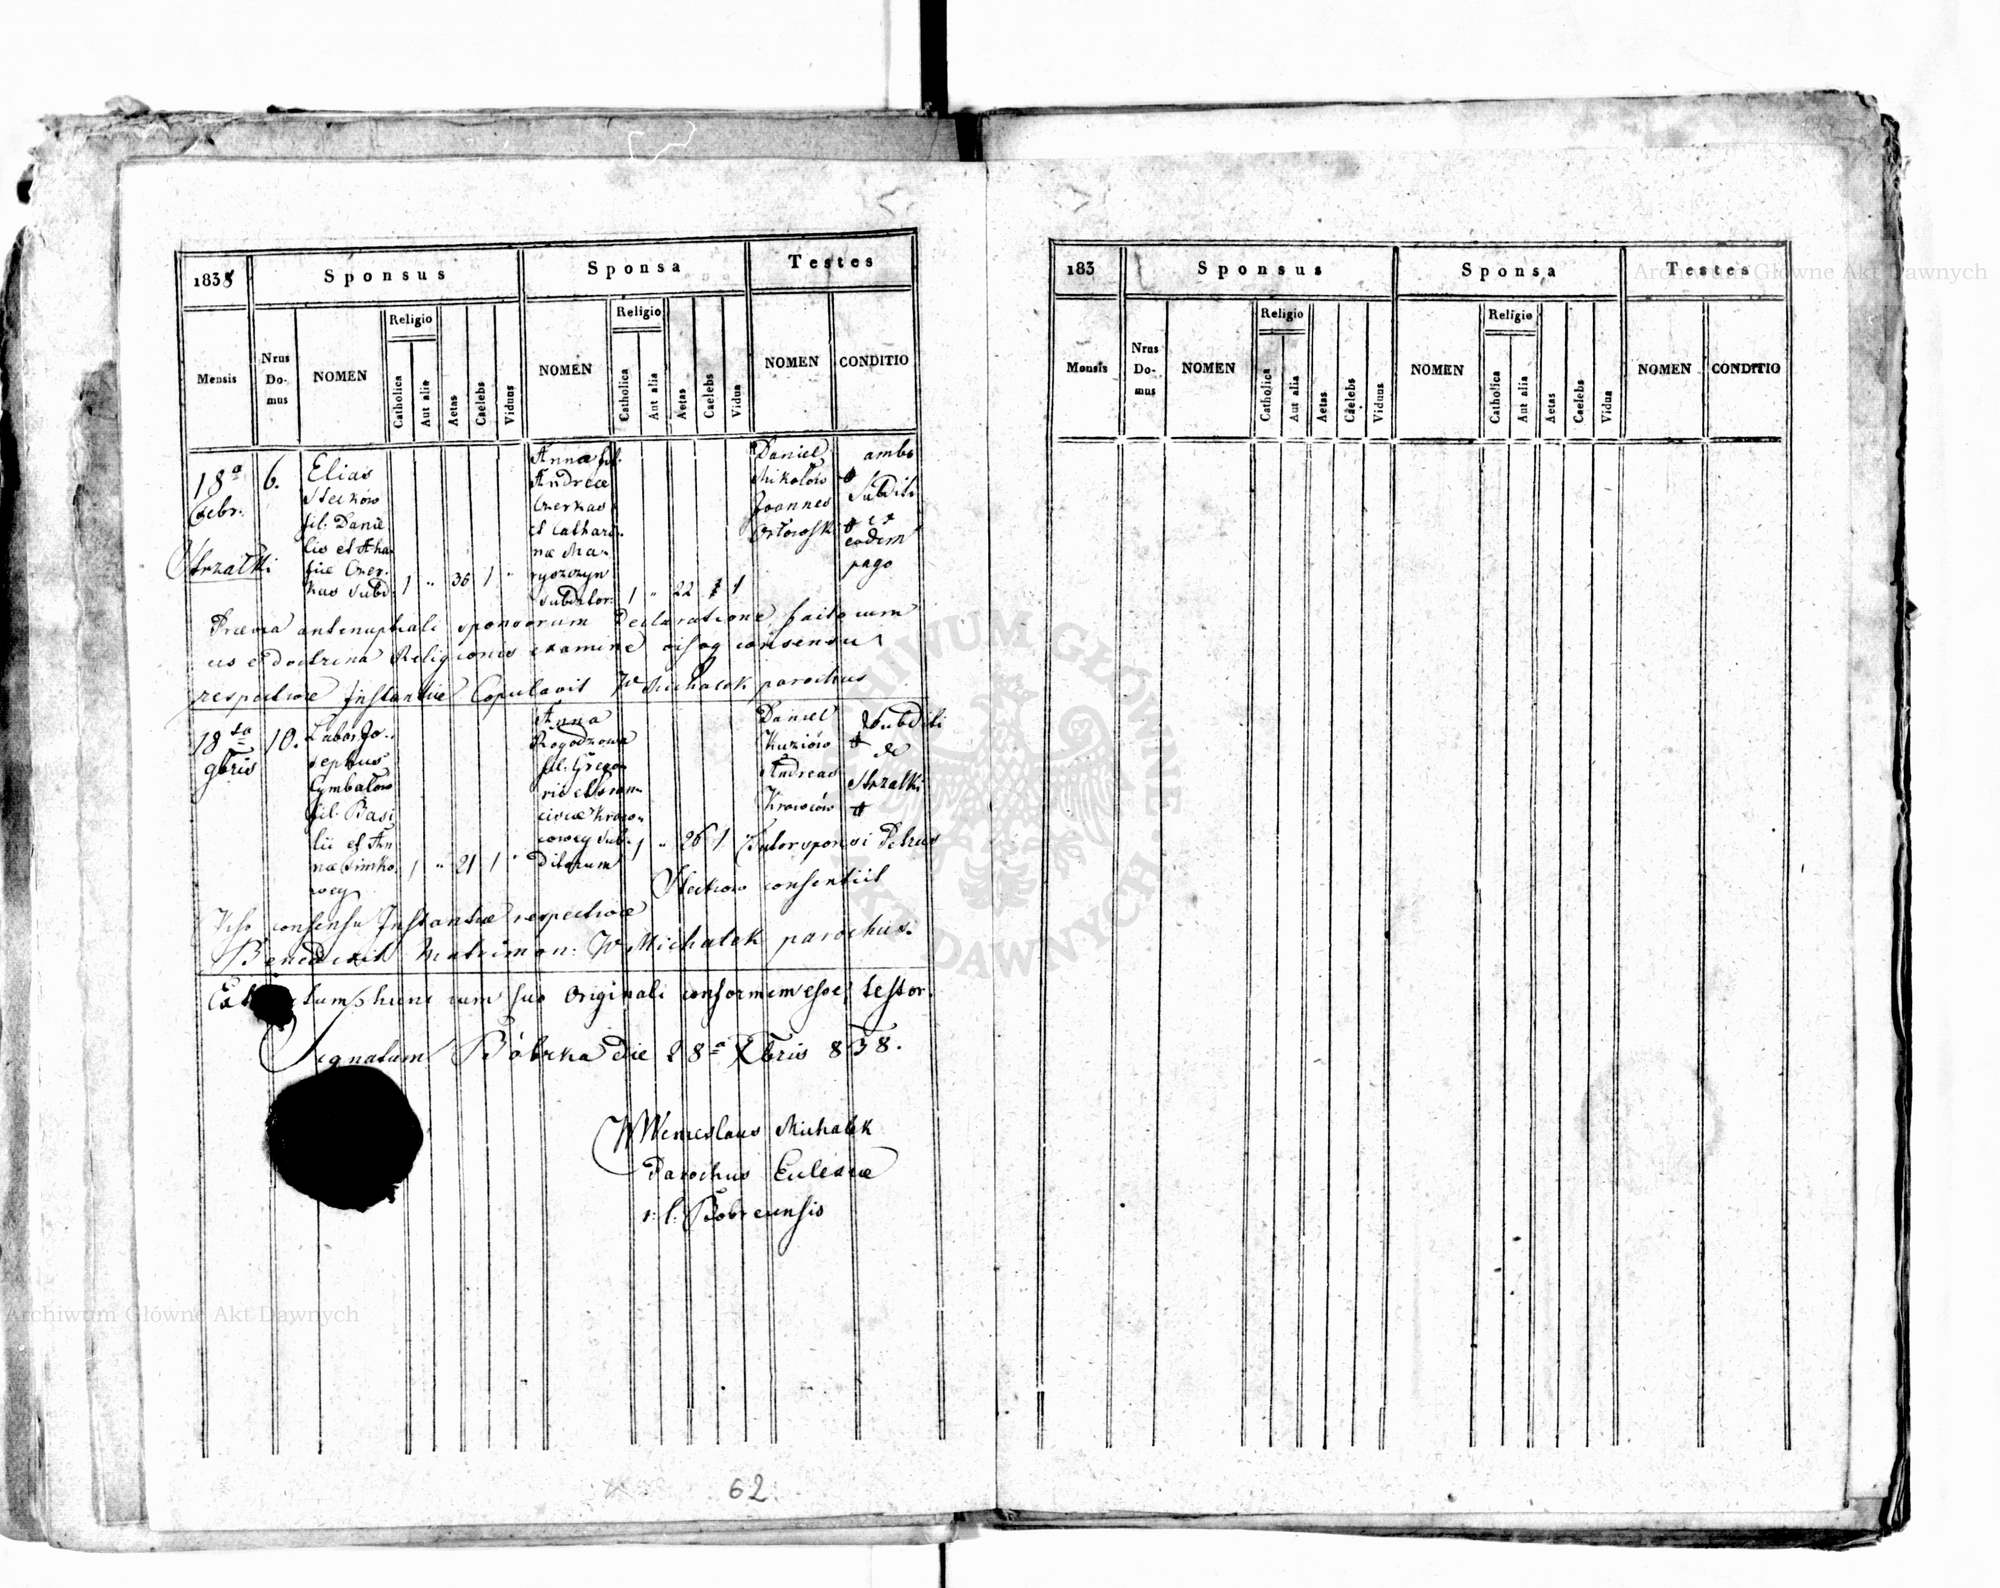 1838
Sponsus
Sponsa
Testes
Mensis
Nrus Do- mus
NOMEN
Religio
Catholica
Aut alia
Aetas
Caelebs
Viduus
NOMEN
Religio
Catholica
Aut alia
Aetas
Caelebs
Vidua
NOMEN
CONDITIO
18ª
6.
Elias
Steckow
fil: Danie
lis et
Czer-
kas Subd.
1 „ 36 1 „
Anna fil.
Andreæ
Czerkas
et Cathari-
næ Ma-
ryszczyn
Subditor:
1 „ 22 1
Daniel
Mikołow
Joannes
ambo
Subditi
eodem
pago
Strzałki
Prævia antenuptiali sponsorum Declaratione facto cum
iis e doctrina Religionis examine consensu
respectivæ Instantiæ Copulavit W Michalek parochus
18
10.
9bris
Labor. Jo-
sephus
Cymbałow
fil: Basi
lii et An
næ Simko
wey
1 „ 21 1 „
Anna
Rogodzowa
fil. Grego
rii et Fran-
ciscæ Krow-
cowey Sub-
ditorum
1 „ 26 1
Daniel
Kuziów
Andreas
Krowców
Subditi
de
Strzałki
Tutor sponsi Petrus
Steckow consentiit
Viso consensu Instantiæ respectivæ
Benedixit Matrimon: W Michalek parochus.
hunc cum suo Originali conformem esse, testor.
Signatum Bóbrka die 28ª Xbris 838.
Wenceslaus Michalek
Parochus Ecclesiæ
r: l: Bobrcensis
62
183
Sponsus
Sponsa
Testes
Mensis
Nrus Do- mus
NOMEN
Religio
Catholica
Aut alia
Aetas
Caelebs
Viduus
NOMEN
Religio
Catholica
Aut alia
Aetas
Caelebs
Vidua
NOMEN
CONDITIO
Archiwum Główne Akt Dawnych
ARCHIWUM GŁÓWNE AKT DAWNYCH
Archiwum Główne Akt Dawnych